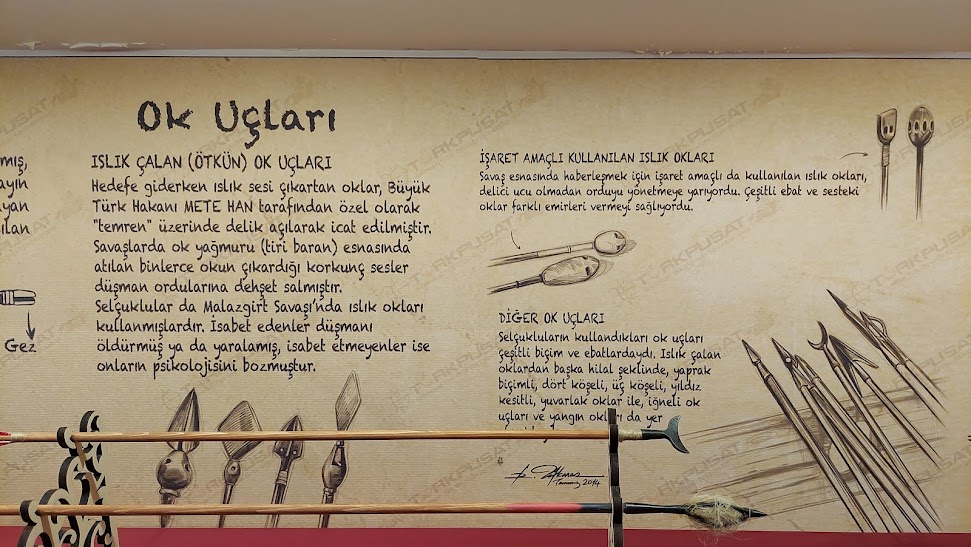 Ok Uçları
mış,
ayın
yan
ılan
Gez
ISLIK ÇALAN (ÖTKÜN) OK UÇLARI
Hedefe giderken ıslık sesi çıkartan oklar, Büyük
Türk Hakanı METE HAN tarafından özel olarak
"temren" üzerinde delik açılarak icat edilmiştir.
Savaşlarda ok yağmuru (tiri baran) esnasında
atılan binlerce okun çıkardığı korkunç sesler
düşman ordularına dehşet salmıştır.
Selçuklular da Malazgirt Savaşı'nda ıslık okları
kullanmışlardır. İsabet edenler düşmanı
öldürmüş ya da yaralamış, isabet etmeyenler ise
onların psikolojisini bozmuştur.
İŞARET AMAÇLI KULLANILAN ISLIK OKLARI
Savaş esnasında haberleşmek için işaret amaçlı da kullanılan ıslık okları,
delici ucu olmadan orduyu yönetmeye yarıyordu. Çeşitli ebat ve sesteki
oklar farklı emirleri vermeyi sağlıyordu.
DİĞER OK UÇLARI
Selçukluların kullandıkları ok uçları
çeşitli biçim ve ebatlardaydı. Islık çalan
oklardan başka hilal şeklinde, yaprak
biçimli, dört köşeli, üç köşeli, yıldız
kesitli, yuvarlak oklar ile, iğneli ok
uçları ve yangın okları da yer
Temmuz 2014
TÜRKPUSAT